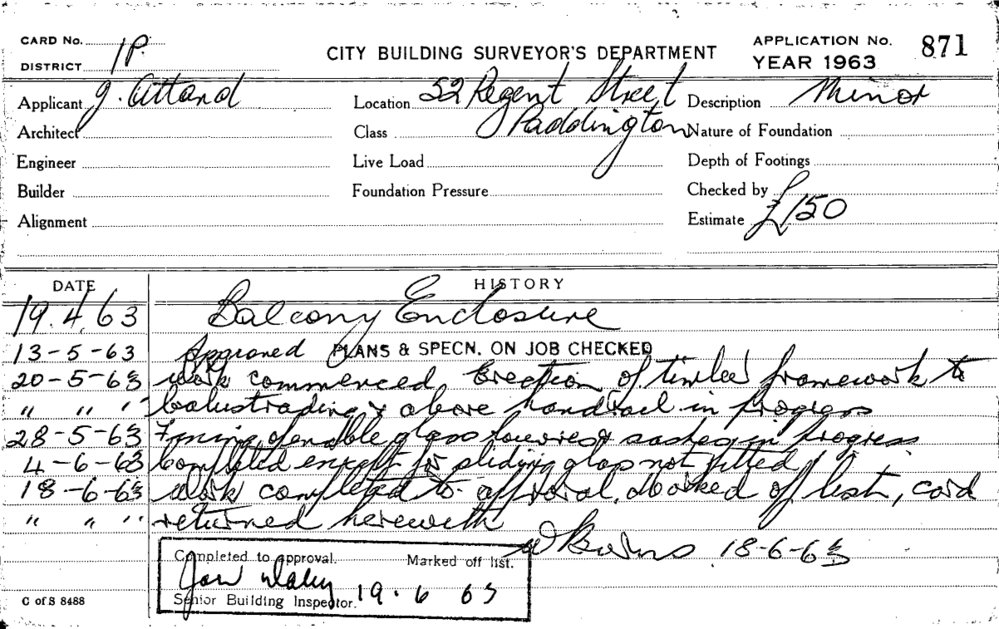 CARD No. 1P.
DISTRICT
CITY BUILDING SURVEYOR'S DEPARTMENT
APPLICATION No. 871
YEAR 1963
Applicant J. Attard
Location 52 Regent Street
Description Minor
Architect
Class Paddington
Nature of Foundation
Engineer
Live Load
Depth of Footings
Builder
Foundation Pressure
Checked by
Alignment
Estimate £150
DATE HISTORY
19.4.63 Balcony Enclosure
13-5-63 Approved PLANS & SPECN. ON JOB CHECKED
20-5-63 Work commenced, Erection of timber framework to
" " " balustrading & above handrail in progress
28-5-63 glass louvres & sashes in progress
4-6-63 Completed except for sliding glass not fitted
18-6-63 Work completed to approval, Marked off list, card
" " " returned herewith
18-6-63
Completed to approval. Marked off list.
Senior Building Inspector. 19.6 63
C of S 8488